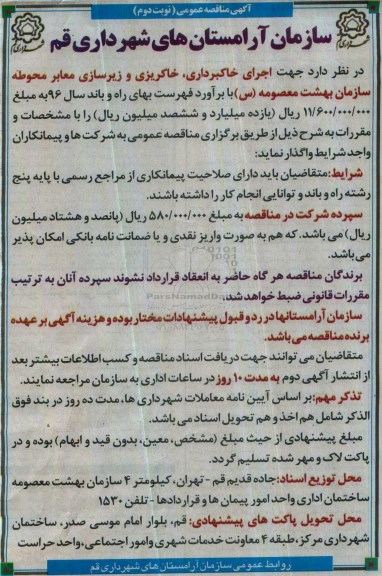 آگهی مناقصه عمومی (نوبت دوم)
سازمان آرامستان های شهرداری قم
در نظر دارد جهت اجرای خاکبرداری، خاکریزی و زیرسازی معابر محوطه
سازمان بهشت معصومه (س) با برآورد فهرست بهای راه و باند سال ۹۶ به مبلغ
۱۱/۶۰۰/۰۰۰/۰۰۰ ریال (یازده میلیارد و ششصد میلیون ریال) را با مشخصات و
مقررات به شرح ذیل از طریق برگزاری مناقصه عمومی به شرکت ها و پیمانکاران
واجد شرایط واگذار نماید:
شرایط: متقاضیان باید دارای صلاحیت پیمانکاری از مراجع رسمی با پایه پنج
رشته راه و باند و توانایی انجام کار را داشته باشند.
سپرده شرکت در مناقصه به مبلغ ۵۸۰/۰۰۰/۰۰۰ ریال (پانصد و هشتاد میلیون
ریال) می باشد. که هم به صورت واریز نقدی و یا ضمانت نامه بانکی امکان پذیر
می باشد.
برندگان مناقصه هر گاه حاضر به انعقاد قرارداد نشوند سپرده آنان به ترتیب
مقررات قانونی ضبط خواهد شد.
سازمان آرامستانها در رد و قبول پیشنهادات مختار بوده و هزینه آگهی بر عهده
برنده مناقصه می باشد.
متقاضیان می توانند جهت دریافت اسناد مناقصه و کسب اطلاعات بیشتر بعد
از انتشار آگهی دوم به مدت ۱۰ روز در ساعات اداری به سازمان مراجعه نمایند.
تذکر مهم: بر اساس آیین نامه معاملات شهرداری ها، مدت ده روز در بند فوق
الذکر شامل هم اخذ و هم تحویل اسناد می باشد.
مبلغ پیشنهادی از حیث مبلغ (مشخص، معین، بدون قید و ابهام) بوده و در
پاکت لاک و مهر شده تسلیم گردد.
محل توزیع اسناد: جاده قدیم قم - تهران، کیلومتر ۴ سازمان بهشت معصومه
ساختمان اداری واحد امور پیمان ها و قراردادها - تلفن ۱۵۳۰
محل تحویل پاکت های پیشنهادی: قم، بلوار امام موسی صدر، ساختمان
شهرداری مرکز، طبقه ۴ معاونت خدمات شهری و امور اجتماعی، واحد حراست
روابط عمومی سازمان آرامستان های شهرداری قم